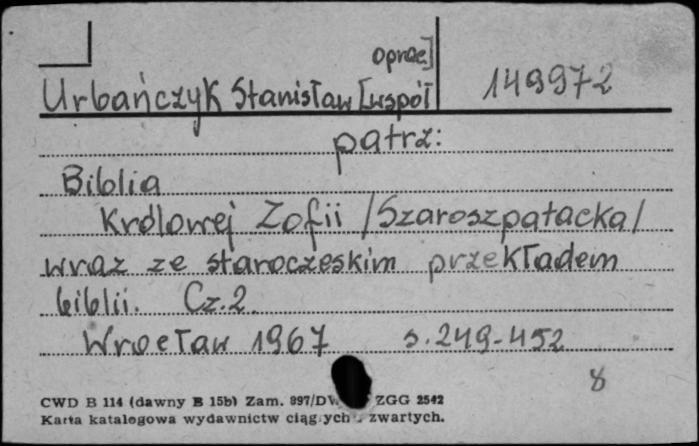 oprac]
Urbańczyk Stanisław [współ
149972
patrz:
Biblia
Królowej Zofii /Szaroszpatacka/
wraz ze staroczeskim przekładem
biblii. Cz.2.
Wrocław 1967 s.249-452
8
CWD B 114 (dawny B 15b) Zam. 997/DW ZGG 2542
Karta katalogowa wydawnictw ciągłych zwartych.